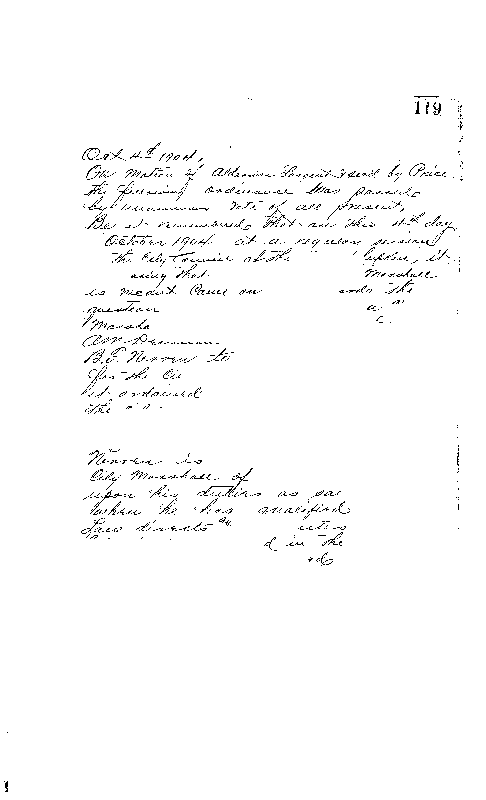 119
Oct. 4th 1904,
On Motion of Alderman Sargent & secd by Price
the foregoing ordinance was passed
by unanimous vote of all present,
Be it remembered that on this 4th day
October 1904 at a regular session
the City Council of the it
being that Marshall
is meant came on the
question
Marsha
B.F. Nerren to
for the Ci
it ordained
the
Nerren is
City Marshall of
upon his duties as
when he has qualified
Law directs
d in the